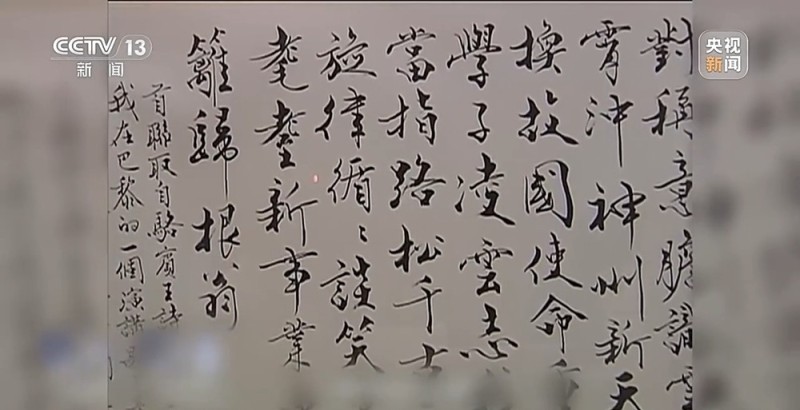 CCTV 13
新闻
央视
新闻
對稱意膽識
霄沖神州新天
換故國使命
學子凌雲志
當指路松千
旋律循〻談笑
耄耋新事業
籬歸根翁
首聯取自駱賓王詩
我在巴黎的一個演講